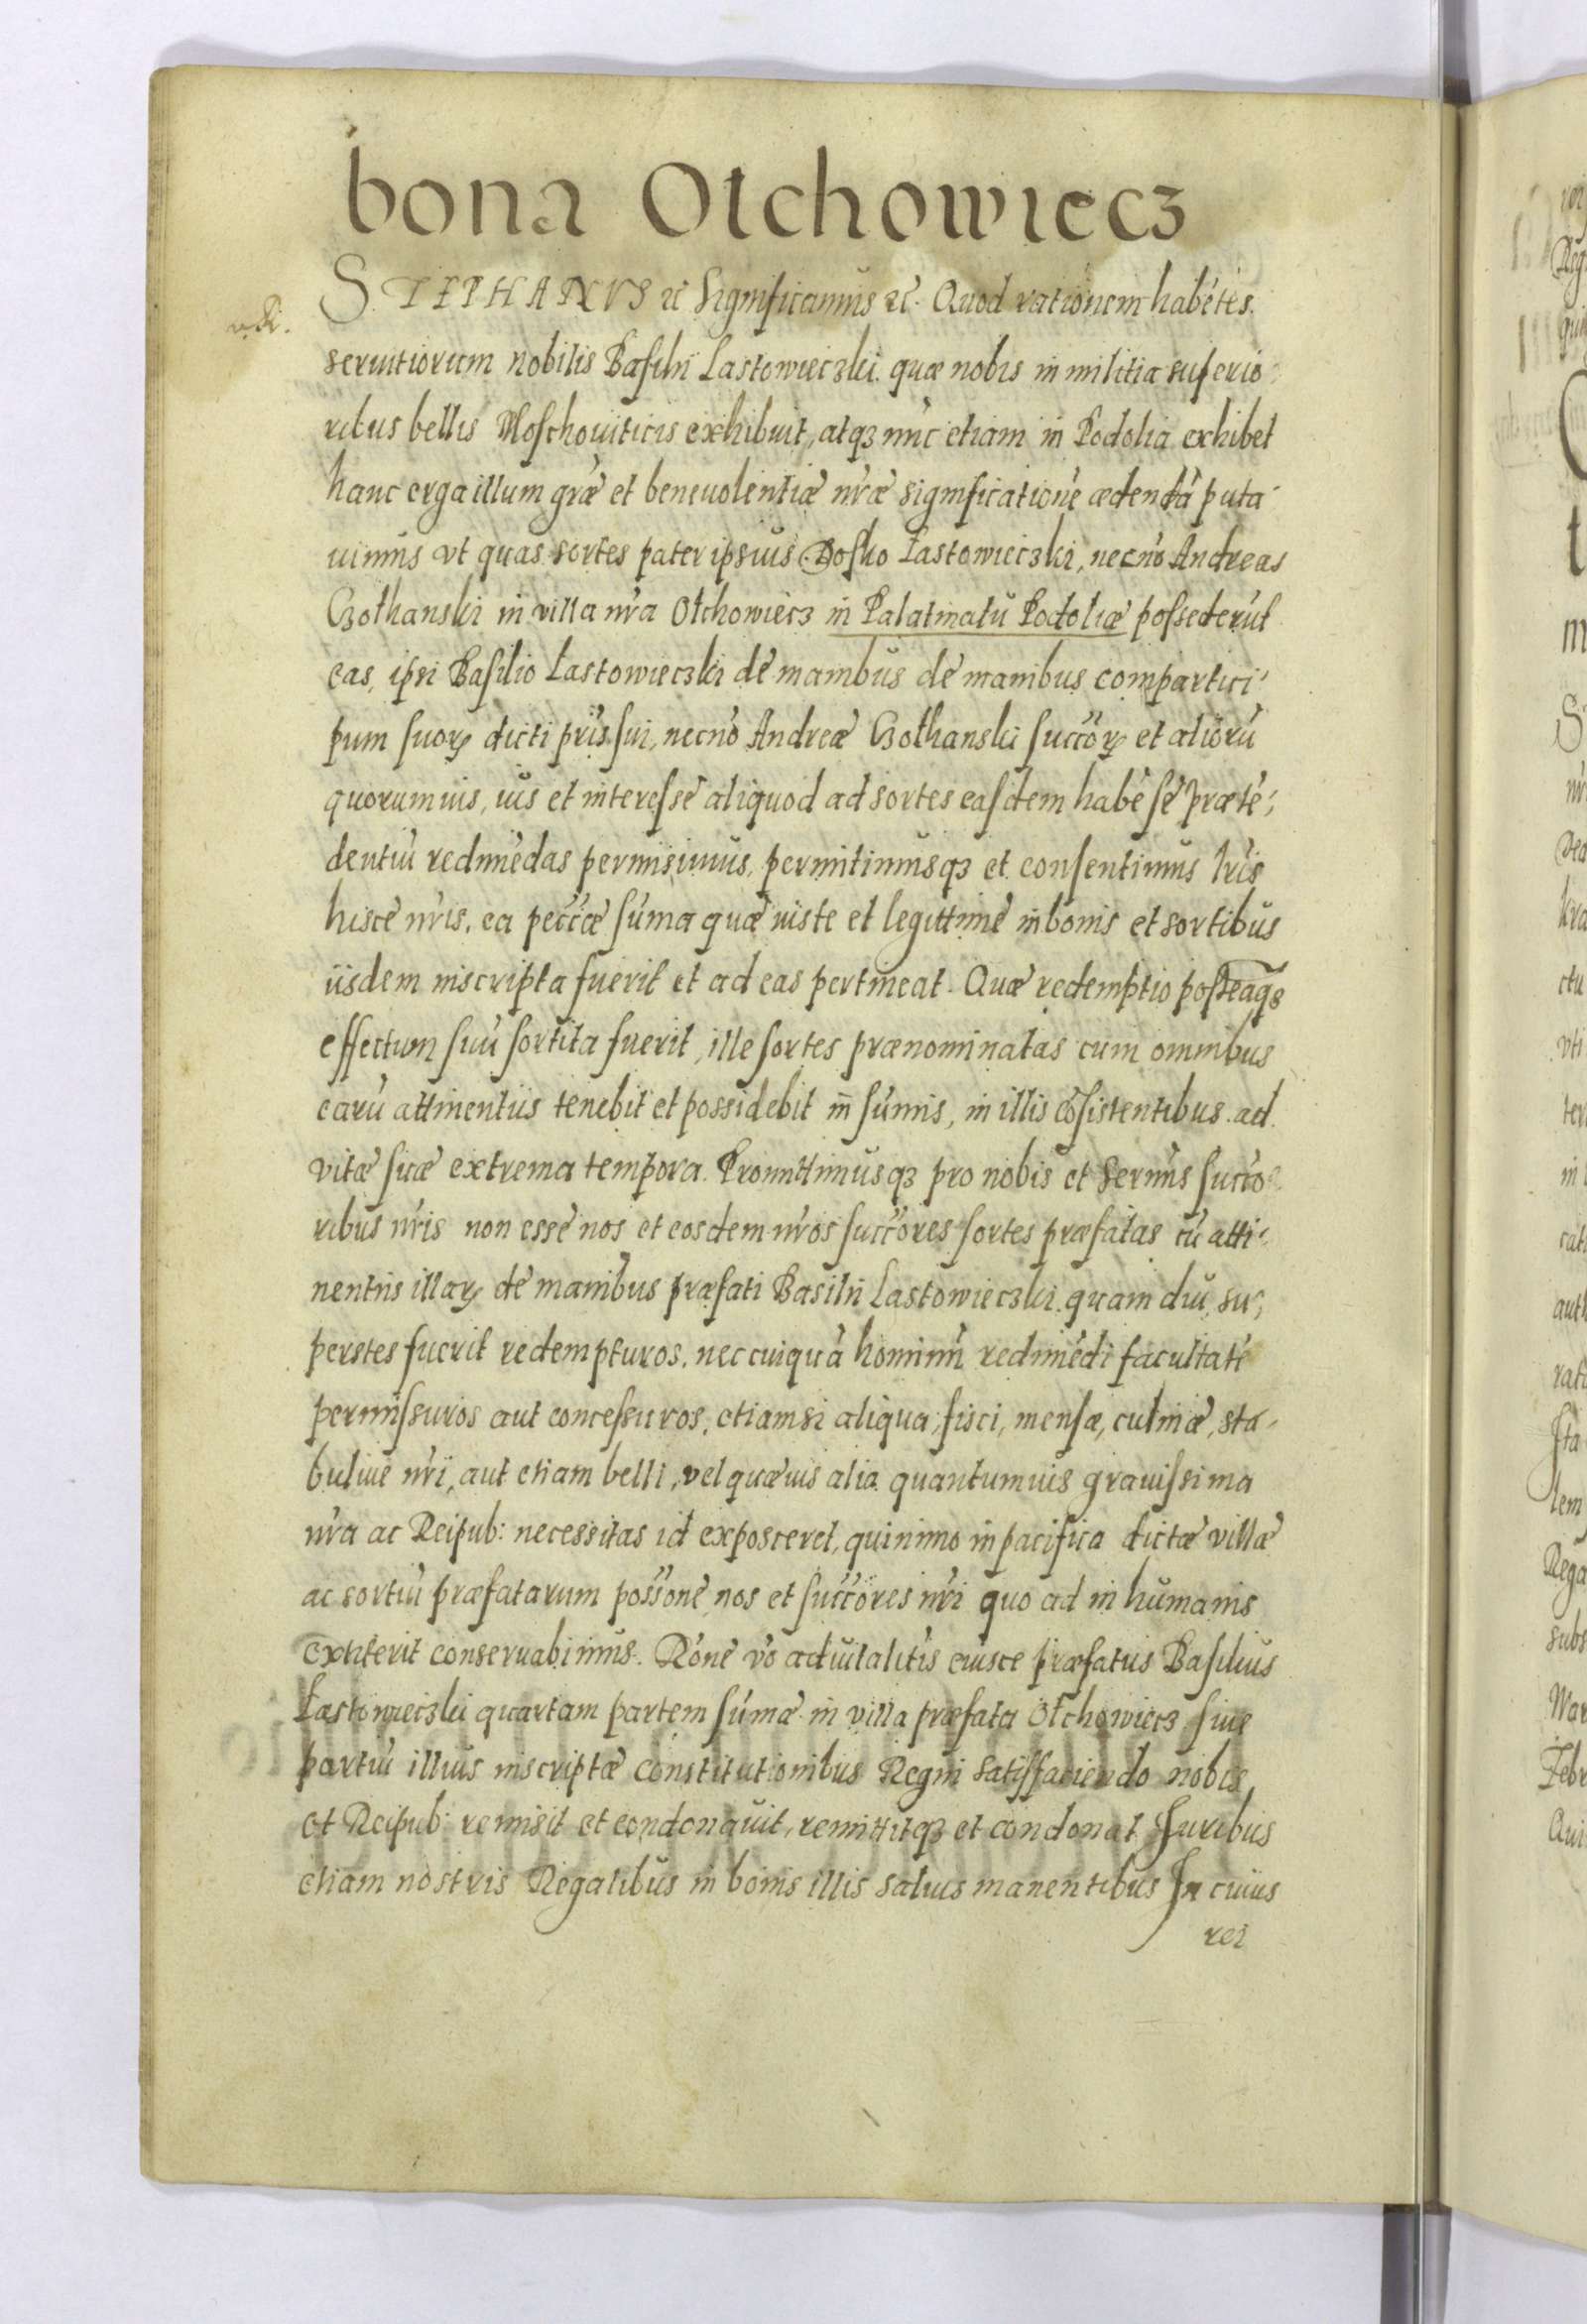 bona Olchowiecz
STEPHANVS etc Significamus etc. Quod rationem habẽtes.
seruitiorum nobilis Basilii Lastowieczki. quæ nobis in militia superio-
ribus bellis Moschouiticis exhibuit, atq3 nũc etiam in Podolia exhibet
hanc erga illum gr̃æ et beneuolentiæ nr̃æ significationẽ ædendã puta-
uimus vt quas sortes pater ipsius Dosko Lastowieczki, necnõ Andreas
Golhanski in villa nr̃a Olchowiecz in Palatinatu Podoliæ possederũt
eas, ipsi Basilio Lastowieczki de manibus de manibus compartici-
pum suoꝝ dicti pr̃is sui, necnõ Andreæ Golhanski succõꝝ et aliorũ
quorumuis, ius et interesse aliquod ad sortes easdem habẽ sẽ prætẽ-
dentiũ redimẽdas permisimus, permitimusq3 et consentimus lr̃is
hisce nr̃is, ea pecc̃æ sũma quæ iuste et legittime in bonis et sortibus
iisdem inscripta fuerit et ad eas pertineat. Quæ redemptio posteaq3
effectum suũ sortita fuerit, ille sortes prænominatas cum omnibus
earũ attinentiis tenebit et possidebit in sũmis, in illis cõsistentibus. ad
vitæ suæ extrema tempora. Promittimusq3 pro nobis et Serm̃is succo-
ribus nr̃is non esse nos et eosdem nr̃os succõres sortes præfatas cũ atti-
nentiis illaꝝ de manibus præfati Basilii Lastowieczki. quam diu su-
perstes fuerit redempturos, nec cuiquã hominũ redimẽdi facultatẽ
permissuros aut concessuros, etiamsi aliqua, fisci, mensæ, culinæ, sta-
buliue nr̃i, aut etiam belli, vel quæuis alia quantumuis grauissima
nr̃a ac Reipub: necessitas id exposceret, quinimo in pacifica dictæ villæ
ac sortiũ præfatarum possõne nos et succõres nr̃i quo ad in humanis
extiterit conseruabimus. Rõne võ aduitalitis eiusce præfatus Basilius
Lastowieczki quartam partem sũmæ in villa præfata Olchowiecz siue
partiũ illius inscriptæ constitutionibus Regni satisfaciendo nobis
et Reipub: remisit et condonauit, remittitq3 et condonat Juribus
etiam nostris Regalibus in bonis illis saluis manentibus In cuius
rei